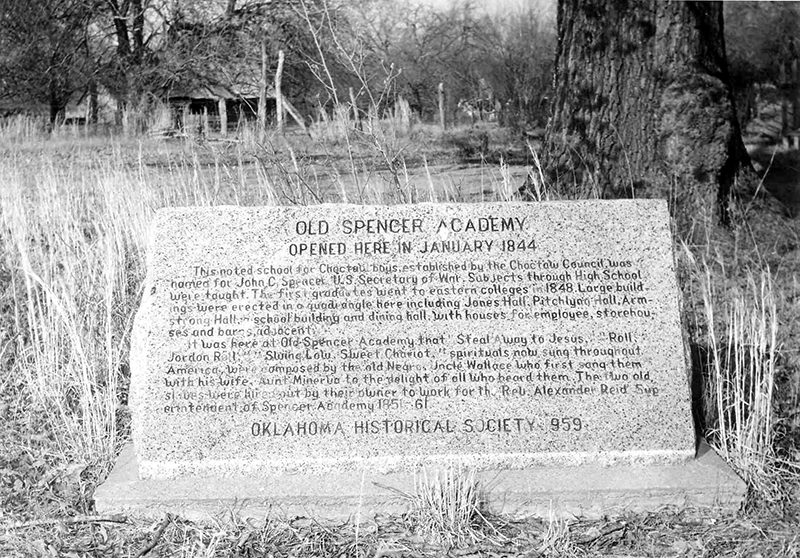 OLD SPENCER ACADEMY
OPENED HERE IN JANUARY 1844
This noted school for Choctaw boys, established by the Choctaw Council, was
named for John C. Spencer, U.S. Secretary of War. Subjects through High School
were taught. The first graduates went to eastern colleges in 1848. Large build-
ings were erected in a quadrangle here including Jones Hall, Pitchlynn Hall, Arm-
strong Hall, school building and dining hall, with houses for employee, storehou-
ses and barns adjacent.
It was here at Old Spencer Academy that "Steal Away to Jesus," "Roll,
Jordon Roll," "Swing Low, Sweet Chariot," spirituals now sung throughout
America, were composed by the old Negro, Uncle Wallace who first sang them
with his wife, Aunt Minerva to the delight of all who heard them. The two old
slaves were hired out by their owner to work for the Rev. Alexander Reid Sup
erintendent of Spencer Academy 1851-61
OKLAHOMA HISTORICAL SOCIETY 959